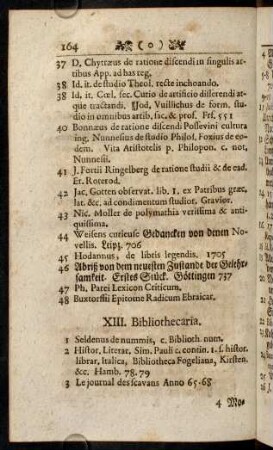 164 ( o )
37 D. Chytræus de ratione discendi in singulis artibus App. ad has reg.
38 Id. it. de studio Theol. recte inchoando.
38 Id. it. Cœl. sec. Curio de artificio disserendi atque tractandi. Jod. Vuillichus de form. studio in omnibus artib. sac. & prof. Frf. 551
40 Bonnæus de ratione discendi Possevini cultura ing. Nunnesius de studio Philos. Foxius de eodem. Vita Aristotelis p. Philopon. c. not. Nunnesii.
41 J. Fortii Ringelberg de ratione studii & de ead. Er. Roterod.
42 Jac. Gotten observat. lib. 1. ex Patribus græc. lat. &c. ad condimentum studior. Gravior.
43 Nic. Moller de polymathia verissima & antiquissima.
44 Weisens curieuse Gedancken von denen Novellis. Leipz. 706
45 Hodannus, de libris legendis. 1705
46 Abriß von dem neuesten Zustande der Gelehrsamkeit. Erstes Stück. Göttingen 737
47 Ph. Parei Lexicon Criticum.
48 Buxtorfii Epitome Radicum Ebraicar.
XIII. Bibliothecaria.
1 Seldenus de nummis, c. Biblioth. num.
2 Histor. Literar. Sim. Pauli c. contin. 1. s. histor. librar. Italica, Bibliotheca Fogeliana, Kirsten. &c. Hamb. 78. 79
3 Le journal des scavans Anno 65-68
4 Mo-